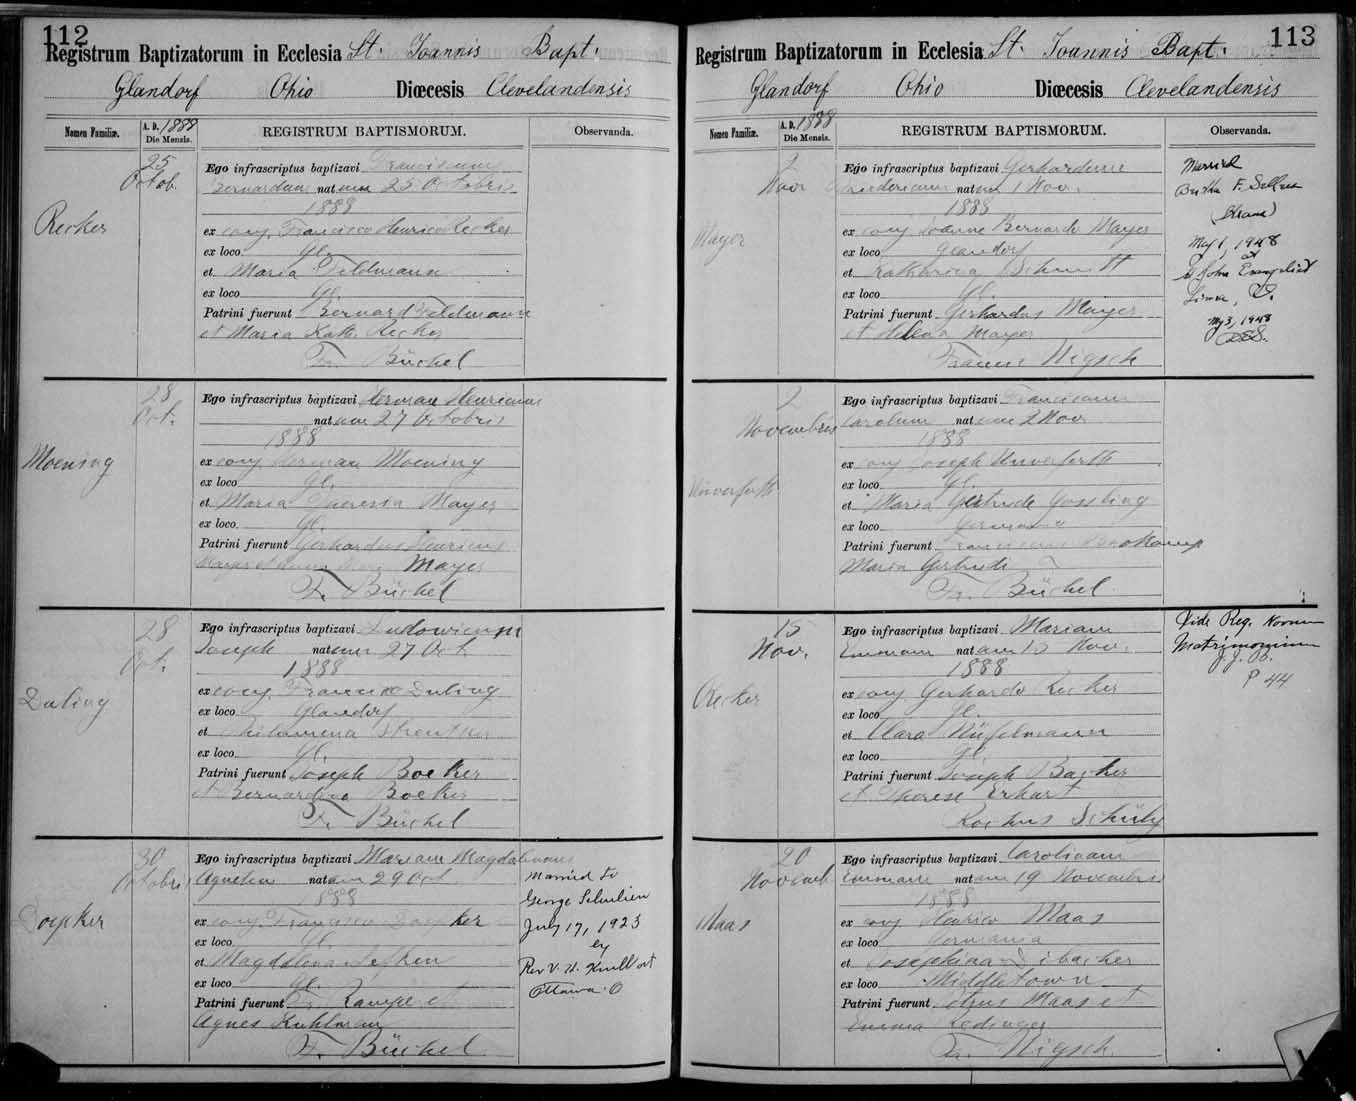 112
Registrum Baptizatorum in Ecclesia St. Joannis Bapt.
Glandorf Ohio Diœcesis Clevelandensis
Nomen Familiæ. A. D. 1888 Die Mensis. REGISTRUM BAPTISMORUM. Observanda.
25 Octob.
Recker
Ego infrascriptus baptizavi Franciscum
Bernardum natum 25 Octobris
1888
ex conj. Francisco Henrico Recker
ex loco Gl.
et Maria Feldmann
ex loco Gl.
Patrini fuerunt Bernard Feldmann
et Maria Kath. Recker
Fr. Büchel
28 Oct.
Moening
Ego infrascriptus baptizavi Herman Henricum
natum 27 Octobris
1888
ex conj. Herman Moening
ex loco Gl.
et Maria Theresia Mayer
ex loco Gl.
Patrini fuerunt Gerhardus Henricus
Mayer et Mayer
Fr. Büchel
28 Oct.
Duling
Ego infrascriptus baptizavi Ludowicum
Joseph natum 27 Oct.
1888
ex conj. Francisco Duling
ex loco Glandorf
et Philomena
ex loco Gl.
Patrini fuerunt Joseph Boeker
et Bernardina Boeker
Fr. Büchel
30 Octobris
Doepker
Ego infrascriptus baptizavi Mariam Magdalenam
Agnetem natam 29 Oct.
1888
ex conj. Francisco Doepker
ex loco Gl.
et Magdalena
ex loco Gl.
Patrini fuerunt Fr. Kampe et
Agnes Kuhlman
Fr. Büchel
Married to
George Schulien
July 17, 1923
by
Rev. V. H.
Ottawa O
113
Registrum Baptizatorum in Ecclesia St. Joannis Bapt.
Glandorf Ohio Diœcesis Clevelandensis
Nomen Familiæ. A. D. 1888 Die Mensis. REGISTRUM BAPTISMORUM. Observanda.
2 Nov
Mayer
Ego infrascriptus baptizavi Gerhardum
natum 1 Nov.
1888
ex conj Joanne Bernardo Mayer
ex loco Glandorf
et Katharina Schmitt
ex loco Gl.
Patrini fuerunt Gerhardus Mayer
et Helena Mayer
Francis Nigsch
Married
Bertha F.
May 1, 1948
at
St John Evangelist
Lima, O.
May 3, 1948
2 Novembris
Unverferth
Ego infrascriptus baptizavi Franciscum
Carolum natum 2 Nov
1888
ex conj Joseph Unverferth
ex loco Gl.
et Maria Gertrude Gossling
ex loco Germania
Patrini fuerunt Franciscus
Maria Gertrude
Fr. Büchel
15 Nov.
Recker
Ego infrascriptus baptizavi Mariam
Emmam natam 15 Nov.
1888
ex conj Gerhardo Recker
ex loco Gl.
et Clara
ex loco Gl.
Patrini fuerunt Joseph Backer
et Therese Erhart
Rochus Schüly
Vide Reg. Novum
Matrimonium
P 44
20 Novemb
Maas
Ego infrascriptus baptizavi Carolinam
Emmam natam 19 Novembris
1888
ex conj Henrico Maas
ex loco Germania
et Josephina
ex loco Middletown
Patrini fuerunt Maas et
Emma
Fr. Nigsch